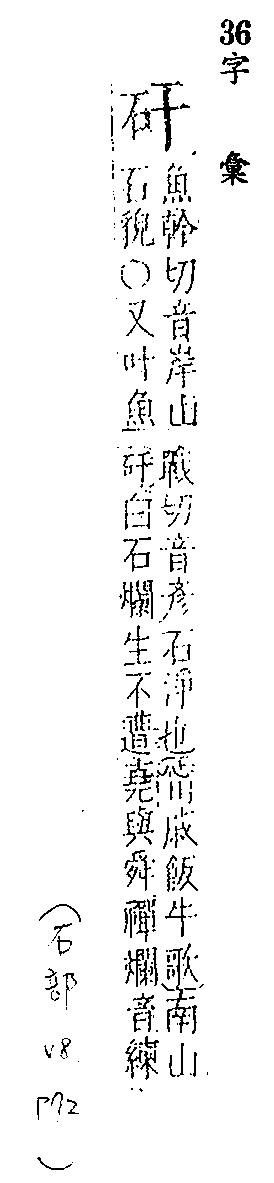 36字 彙
矸
魚幹切音岸山
石貌○又叶魚
戰切音彥石淨也甯戚飯牛歌南山
矸白石爛生不遭堯與舜禪爛音練
(石部 V8 P72)